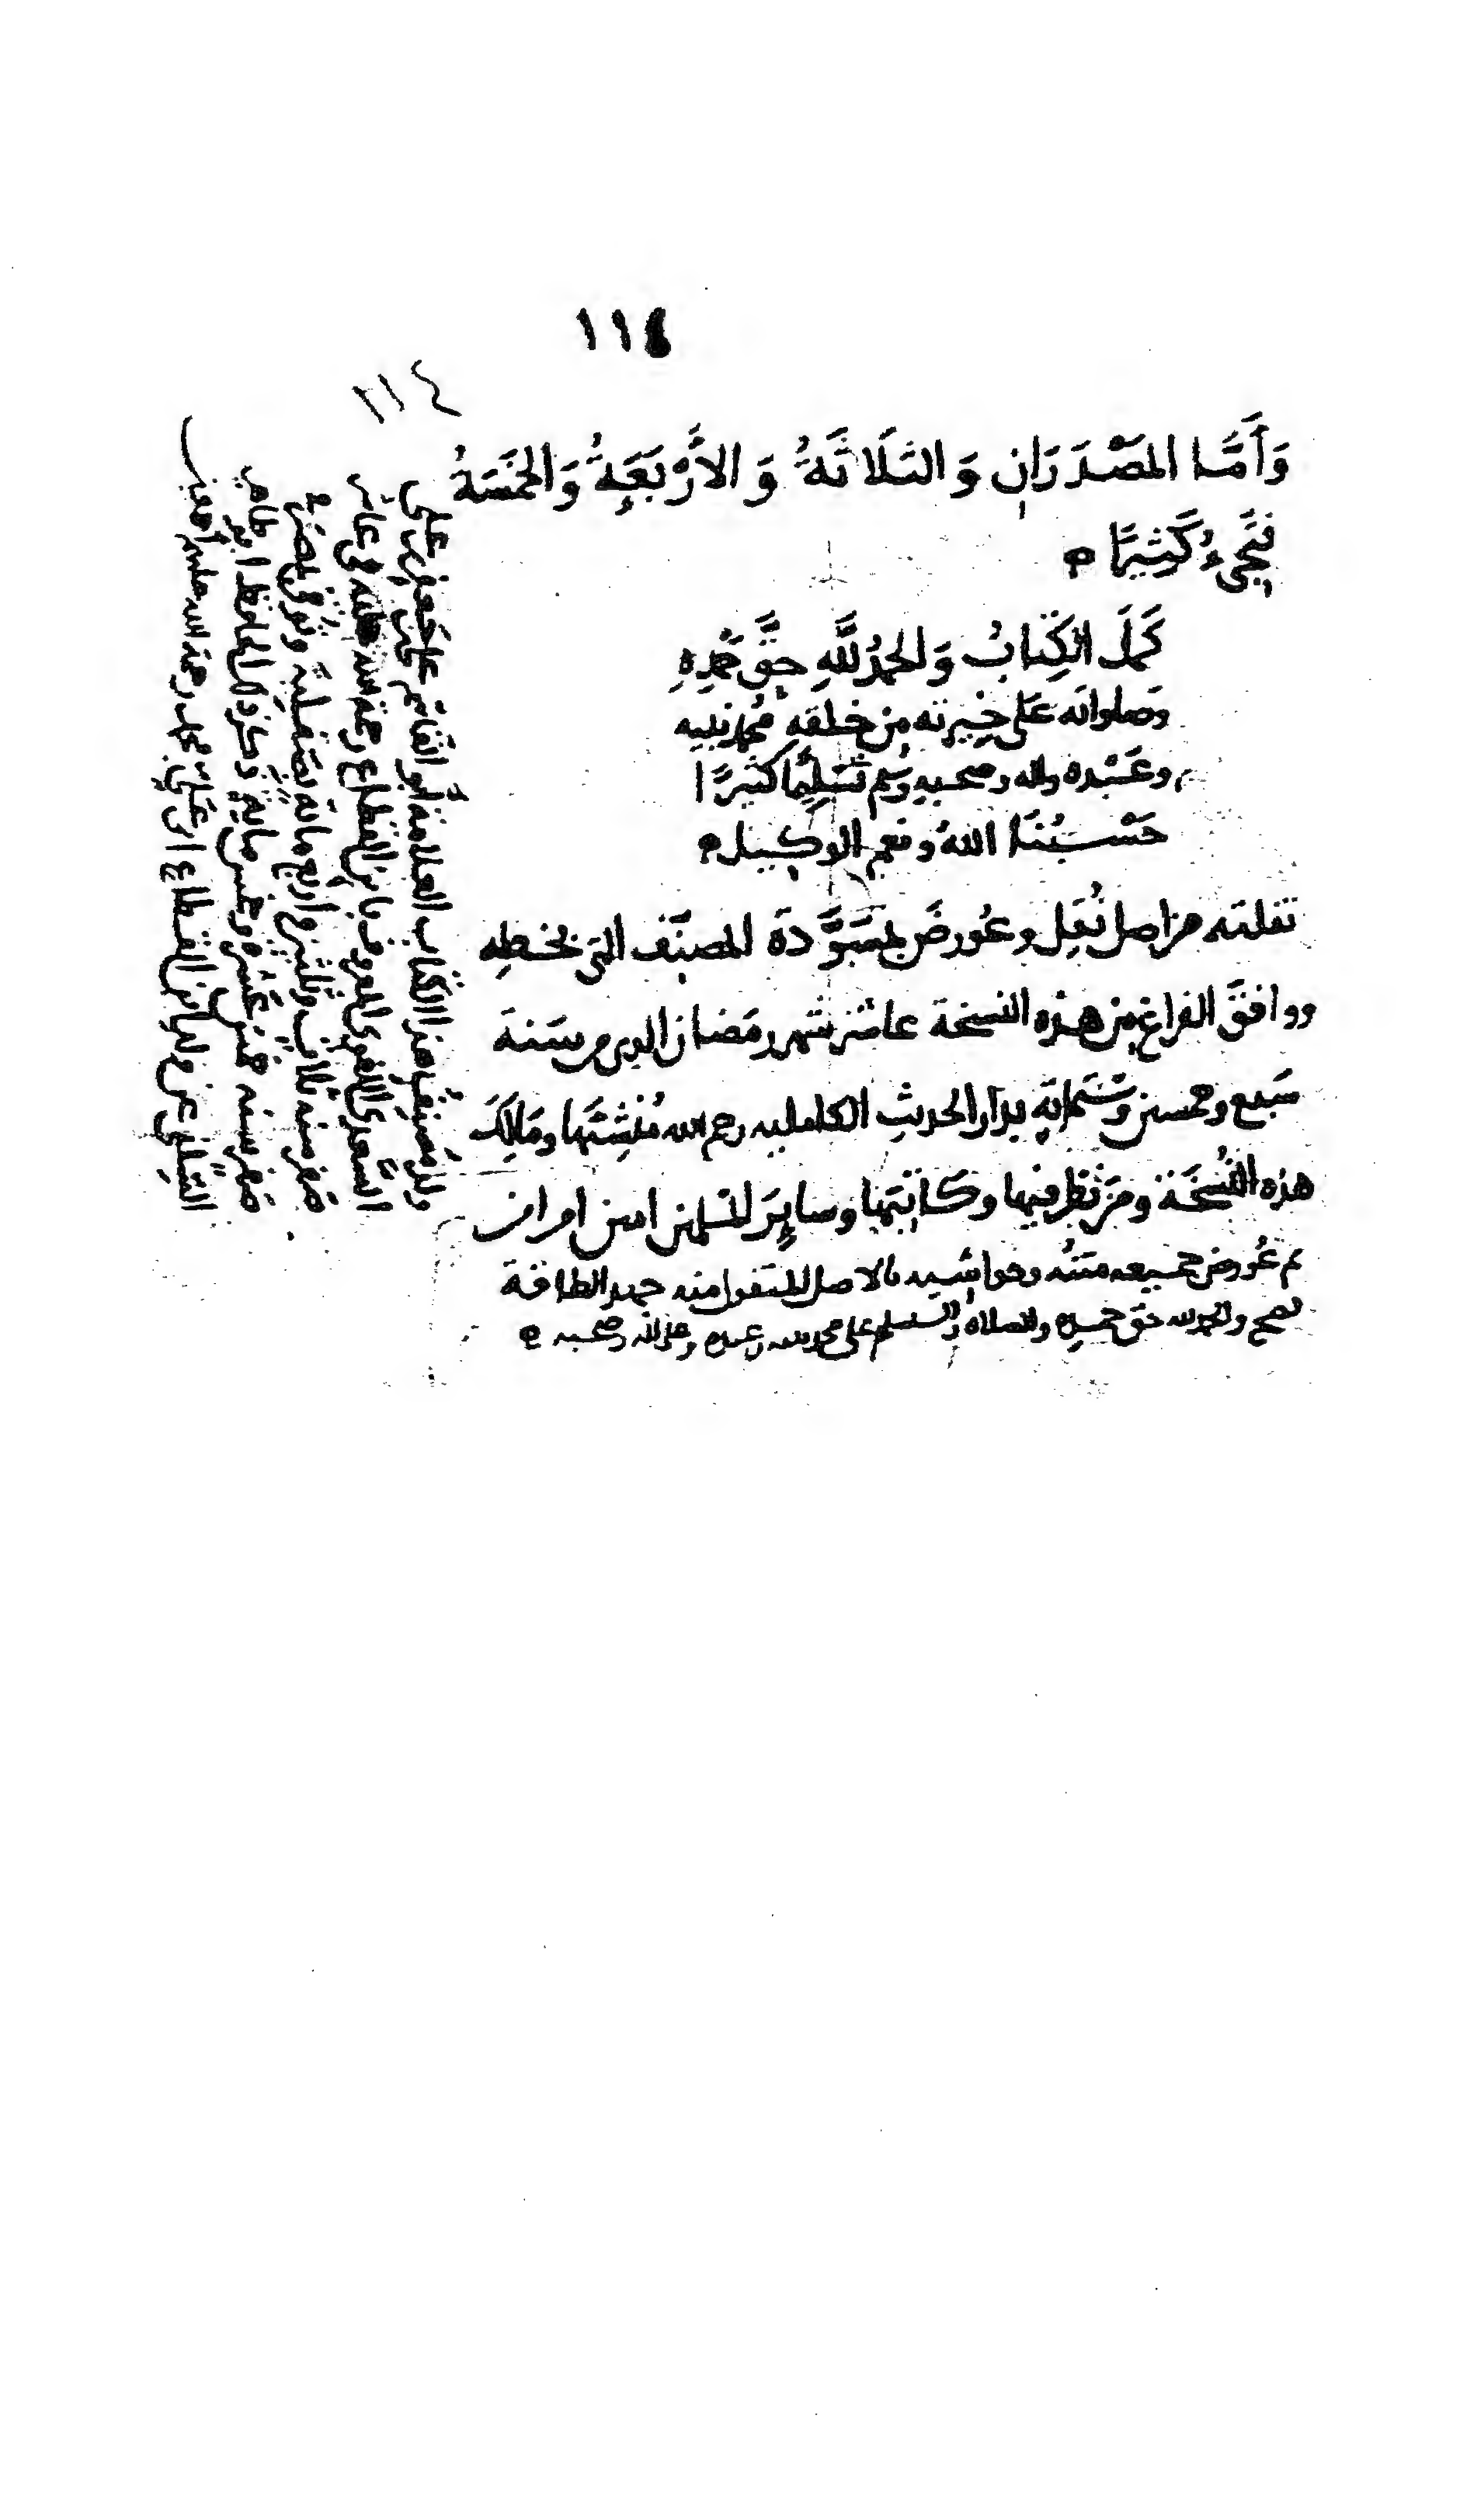 ١١٤
١١٤
وَأَمَّا المَصْدَرَانِ وَالثَلَاثَةُ وَالأَرْبَعَةُ وَالخَمْسَةُ
فَتَجِيءُ كَثِيرًا ه
كَمَلَ الكِتَابُ وَالحَمْدُ لِلَّهِ حَقَّ حَمْدِهِ
وصلواته عَلى خِيرته مِن خلقِهِ مُحمد نبيه
وعَبْده واله وصحبهِ وسلم تَسْلِيمًا كثيرًا
حَسْبُنَا اللهُ ونعم الوكيل ه
نقلته من اصل نُقِل وعُورضَ بمسَوَّدة المصنّف التي بخطِهِ
ووافقَ الفراغ مِن هذه النسخة عاشر شهر رمضان من سَنة
سَبع وخمسين وسِتّمائةٍ بدار الحديثِ الكاملية رحم الله مُنْشِئَها ومَالِكَ
هذه النُسْخَة ومن نظر فيها وكَاتبَها وسايِرَ المسلمين امين امين
تم عُورض جميعه متنه وحواشيه بالاصل المنقول منه جهد الطاقة
فصح والحمد لله حق حمده والصلاة والسلام على محمد نبيه وعبده وعلى اله وصحبه ه
ومُصَنِّف هذا الكتاب العلامة أبو القاسم علي بن جعفر بن علي
السَّعدي اللغوي المعروف بابن القطاع رحمة الله عليه
صفر سنة ثلاث وثلثين واربع مائة بصقلية وتوفي بمصر
صفر سنة خمس عشرة وخمس مائة